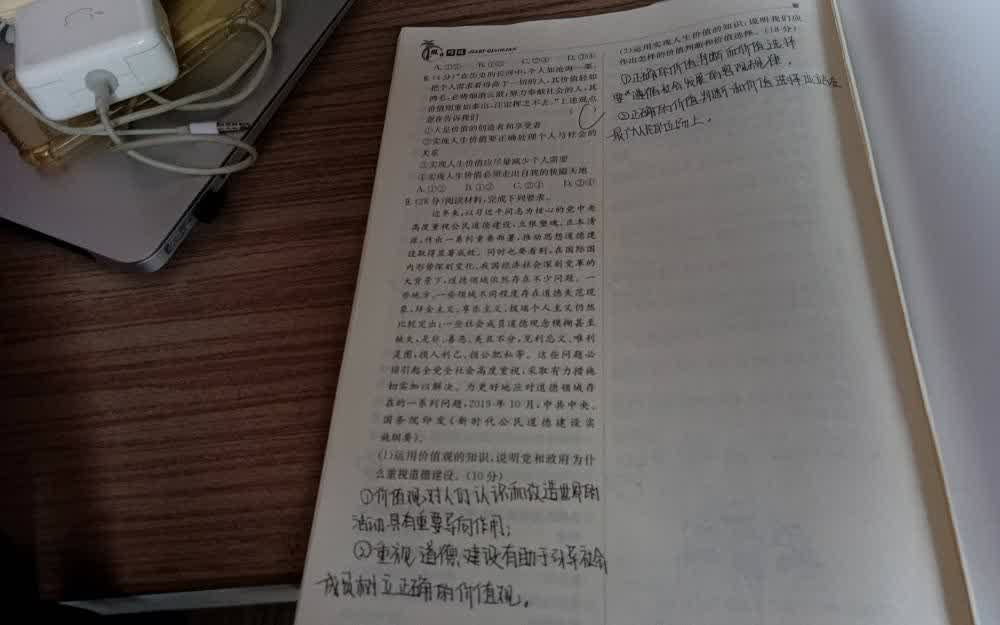 A.①② B.①③ C.②④ D.③④
8.(4分)“在历史的长河中,个人如沧海一粟,
把个人需求看得高于一切的人,其价值轻如
鸿毛,必将烟消云散;努力奉献社会的人,其
价值则重如泰山,江雷挥之不去。”上述观点
意在告诉我们
C
①人是价值的创造者和享受者
②实现人生价值要正确处理个人与社会的
关系
③实现人生价值应尽量减少个人需要
④实现人生价值必须走出自我的狭隘天地
A.①③ B.①② C.②④ D.③④
9.(28分)阅读材料,完成下列要求。
近年来,以习近平同志为核心的党中央
高度重视公民道德建设,立根塑魂、正本清
源,作出一系列重要部署,推动思想道德建
设取得显著成效。同时也要看到,在国际国
内形势深刻变化、我国经济社会深刻变革的
大背景下,道德领域依然存在不少问题。一
些地方、一些领域不同程度存在道德失范现
象,拜金主义、享乐主义、极端个人主义仍然
比较突出;一些社会成员道德观念模糊甚至
缺失,是非、善恶、美丑不分,见利忘义、唯利
是图,损人利己、损公肥私等。这些问题必
须引起全党全社会高度重视,采取有力措施
切实加以解决。为更好地应对道德领域存
在的一系列问题,2019年10月,中共中央、
国务院印发《新时代公民道德建设实
施纲要》。
(1)运用价值观的知识,说明党和政府为什
么重视道德建设。(10分)
①价值观对人们认识和改造世界的
活动具有重要导向作用;
②重视道德建设有助于引导社会
成员树立正确的价值观。
(2)运用实现人生价值的知识,说明我们应
作出怎样的价值判断和价值选择。(18分)
①正确的价值判断和价值选择
要遵循社会发展的客观规律。
②正确的价值判断和价值选择应站在
最广人民的立场上。